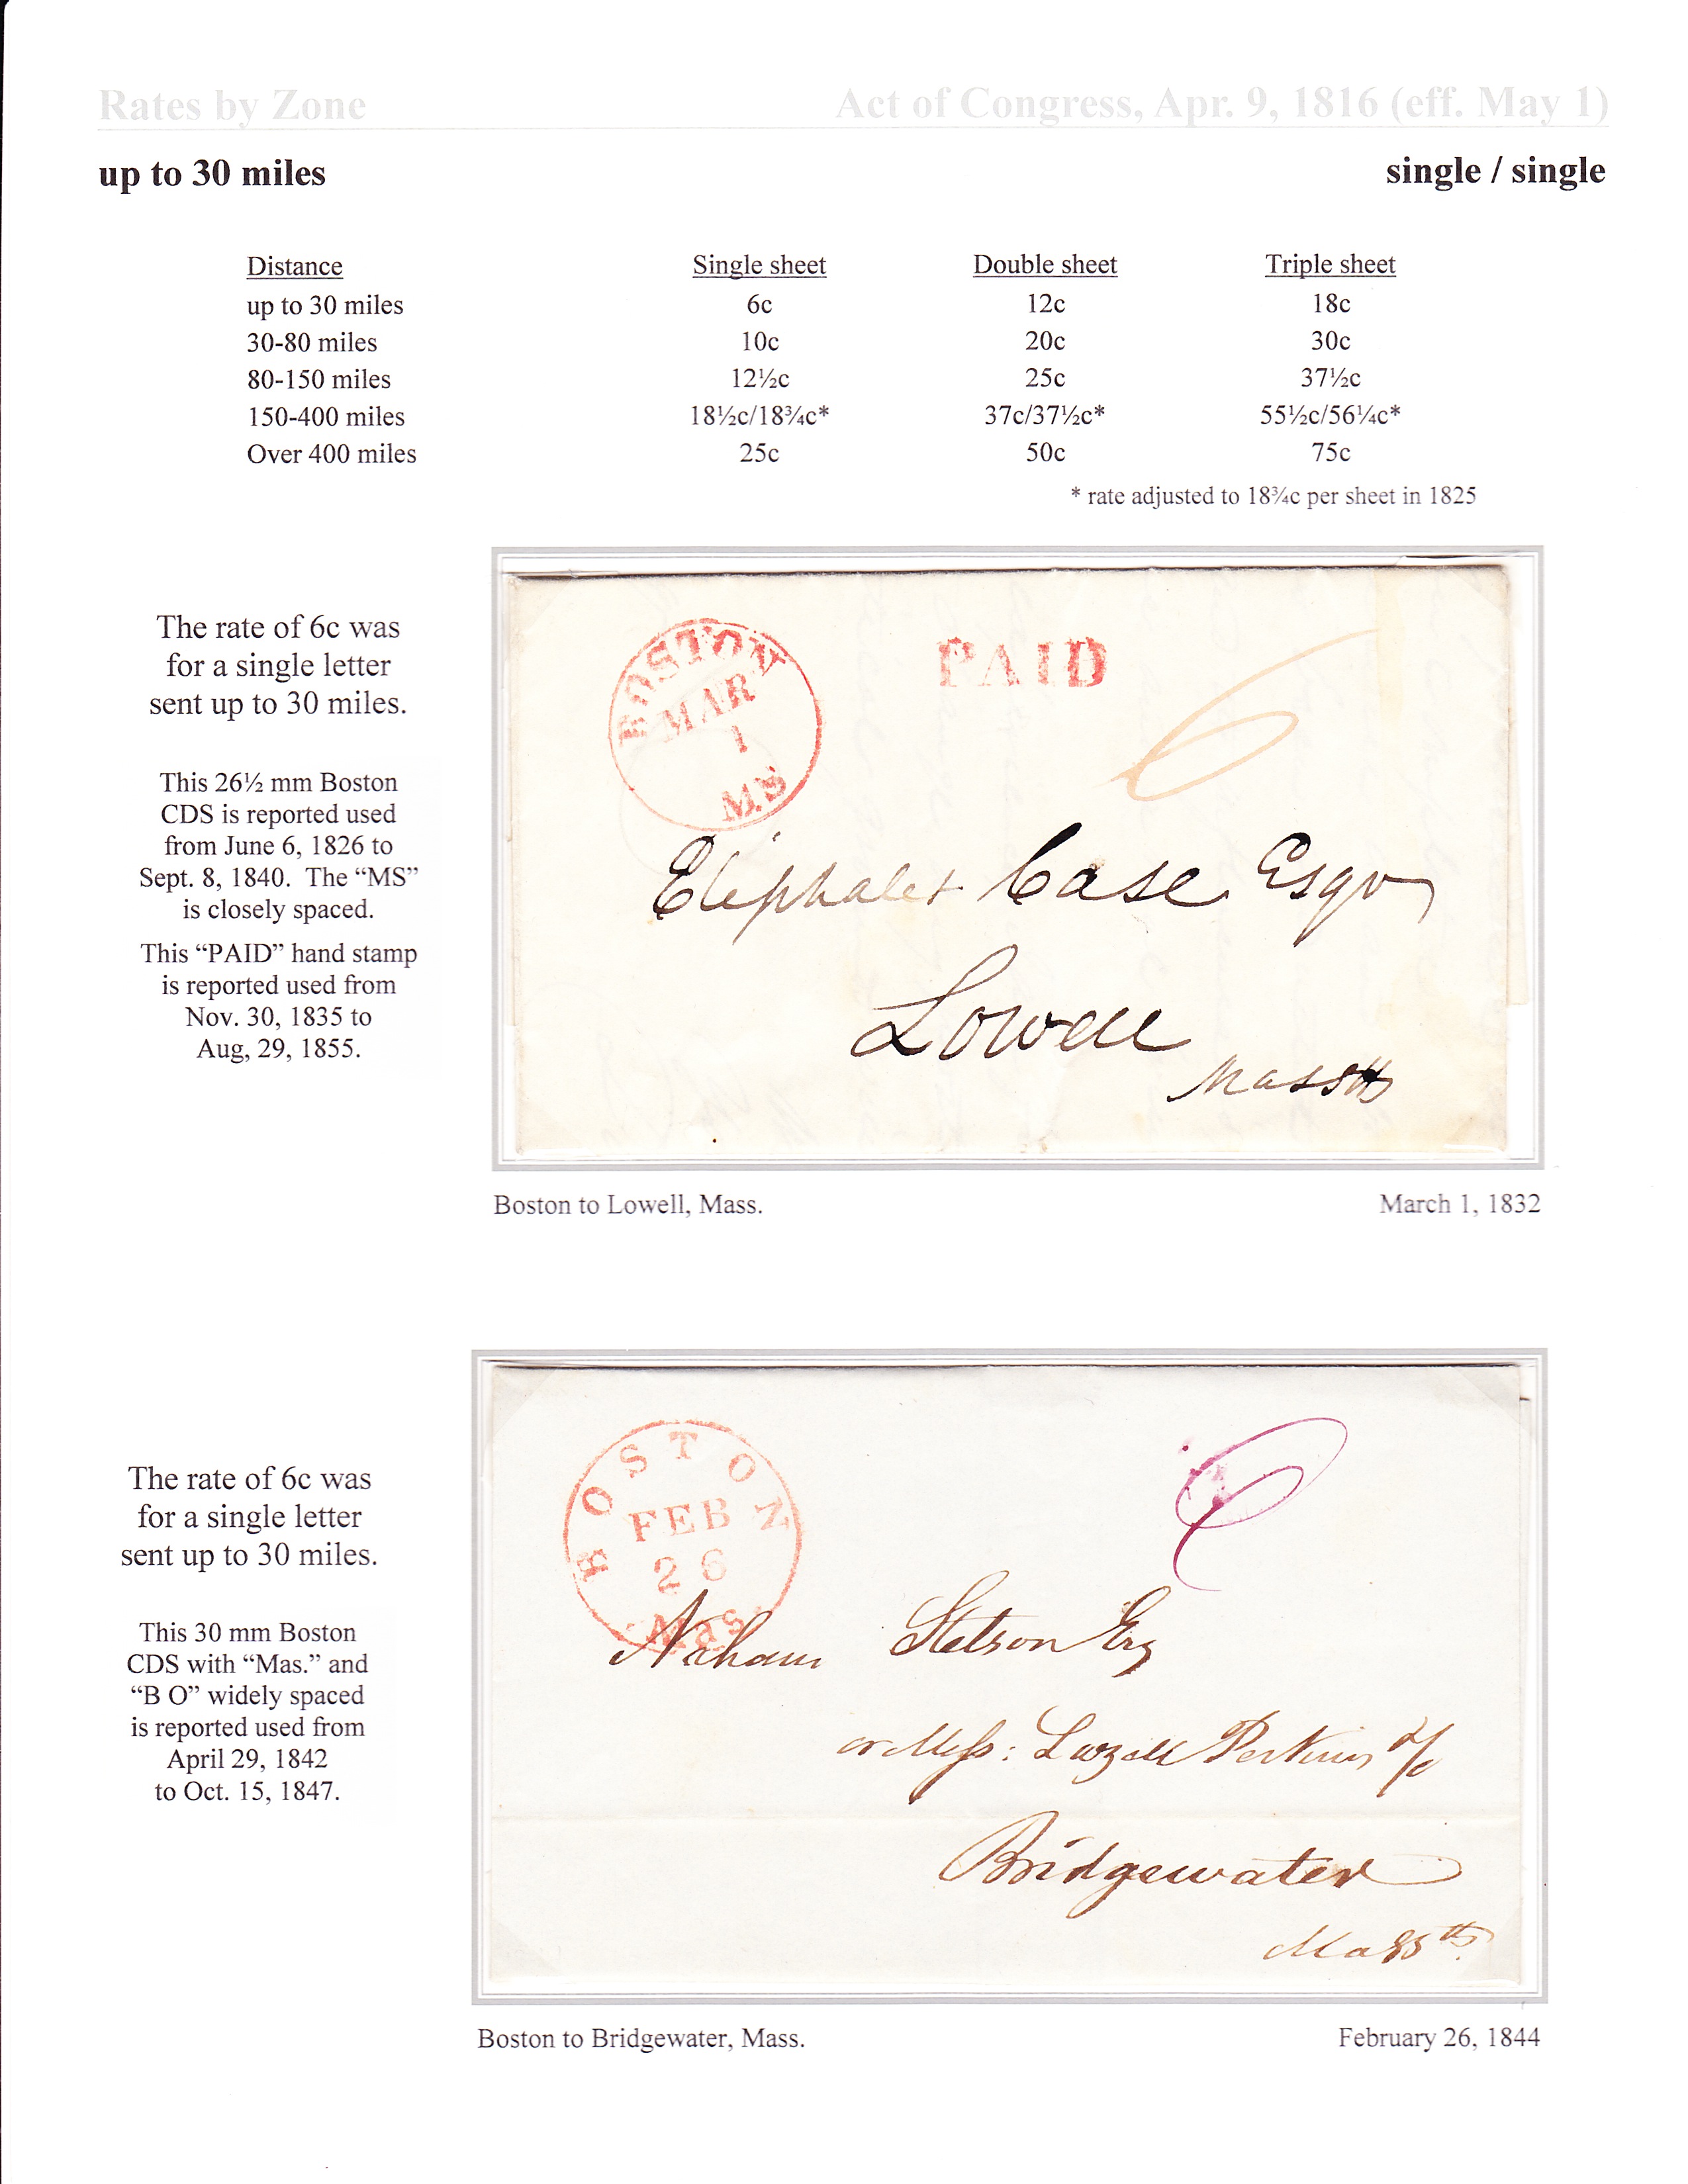 Rates by Zone Act of Congress, Apr. 9, 1816 (eff. May 1)
up to 30 miles single / single
Distance Single sheet Double sheet Triple sheet
up to 30 miles 6c 12c 18c
30-80 miles 10c 20c 30c
80-150 miles 12½c 25c 37½c
150-400 miles 18½c/18¾c* 37c/37½c* 55½c/56¼c*
Over 400 miles 25c 50c 75c
* rate adjusted to 18¾c per sheet in 1825
The rate of 6c was
for a single letter
sent up to 30 miles.
This 26½ mm Boston
CDS is reported used
from June 6, 1826 to
Sept. 8, 1840. The “MS”
is closely spaced.
This “PAID” hand stamp
is reported used from
Nov. 30, 1835 to
Aug, 29, 1855.
BOSTON
MAR
1
MS
PAID
6
Eliphalet Case Esqr
Lowell
Masstts
Boston to Lowell, Mass. March 1, 1832
The rate of 6c was
for a single letter
sent up to 30 miles.
This 30 mm Boston
CDS with “Mas.” and
“B O” widely spaced
is reported used from
April 29, 1842
to Oct. 15, 1847.
BOSTON
FEB
26
Mas.
6
Nahum Stetson Esq
or Mess: Lazell Perkins &/Co
Bridgewater
Massts
Boston to Bridgewater, Mass. February 26, 1844